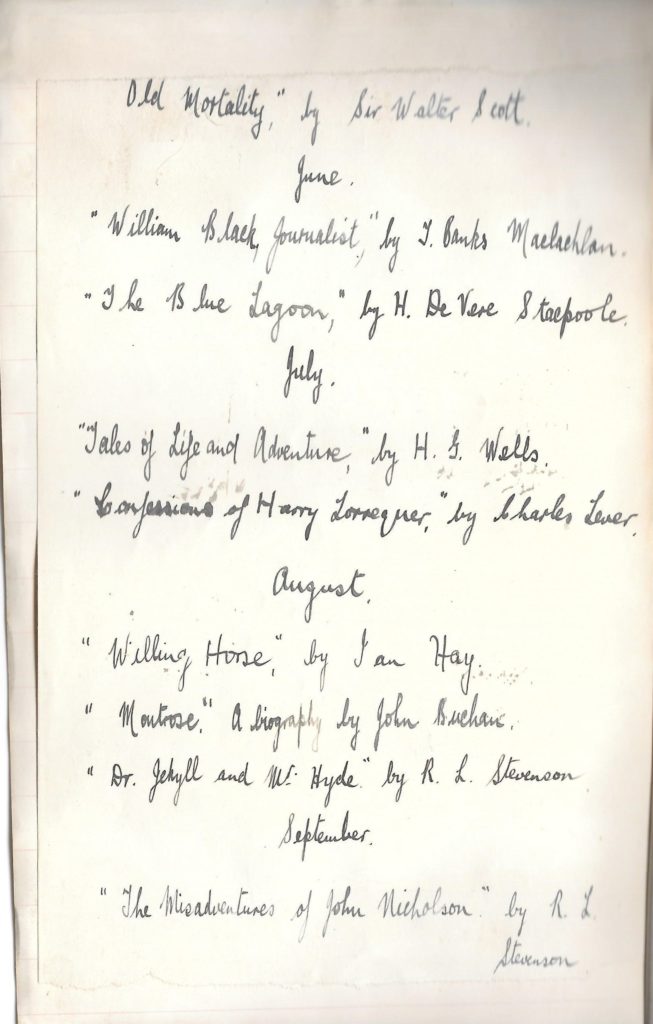 Old Mortality," by Sir Walter Scott.
June.
"William Black, Journalist," by T. Banks Maclachlan.
"The Blue Lagoon," by H. De Vere Stacpoole.
July.
"Tales of Life and Adventure," by H. G. Wells.
"Confessions of Harry Lorrequer," by Charles Lever.
August.
"Willing Horse," by Ian Hay.
"Montrose." A biography by John Buchan.
"Dr. Jekyll and Mr. Hyde" by R. L. Stevenson
September.
"The Misadventures of John Nicholson." by R. L.
Stevenson